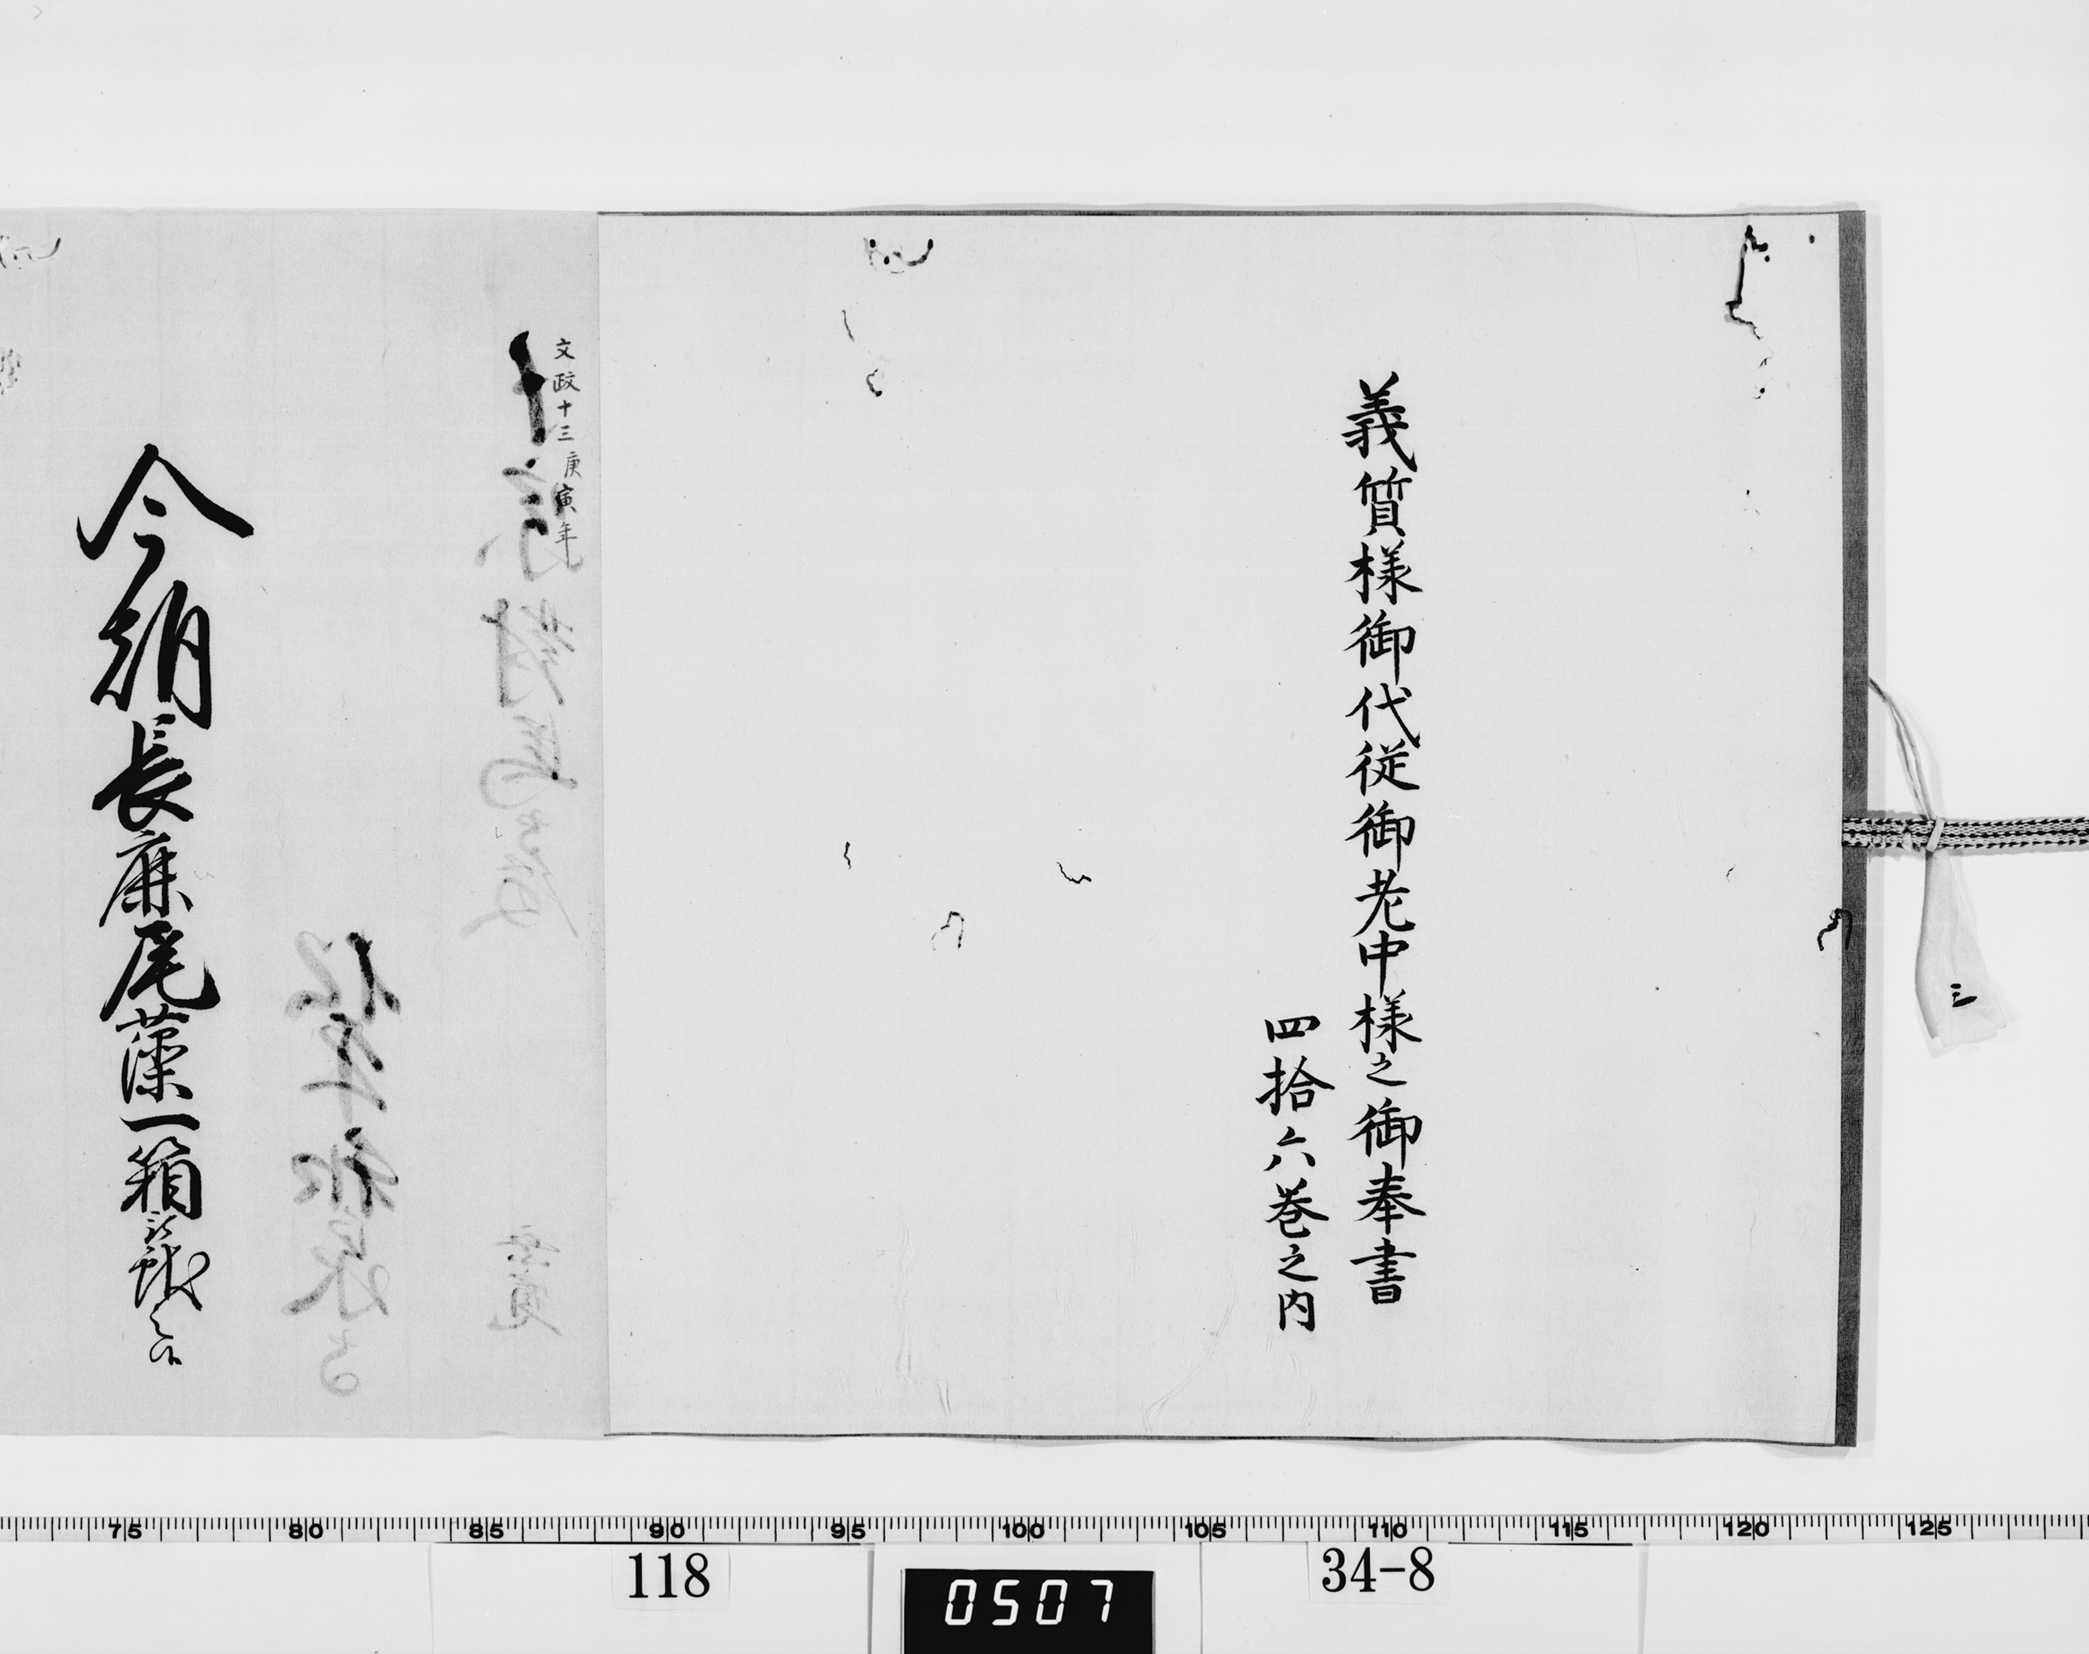 三
義質様御代従御老中様之御奉書
四拾六巻之内
文政十三庚寅年
今朝長麻尾藻一箱
75 80 85 90 95 100 105 110 115 120 125
118
0507
34-8